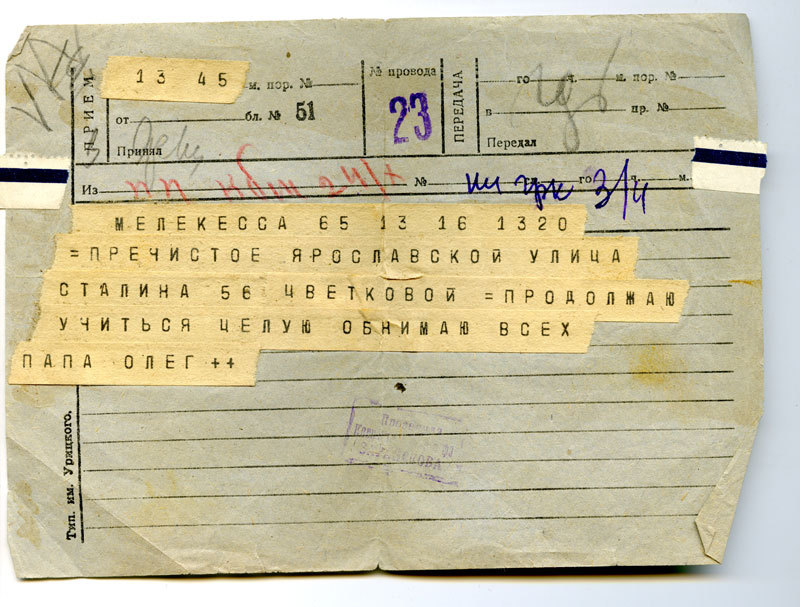 ПРИЕМ
13 45 м. пор. №
№ провода
ПЕРЕДАЧА
го ч. м. пор. №
от бл. № 51
23
в пр. №
Принял
Передал
Из № го ч. м.
3/4
МЕЛЕКЕССА 65 13 16 1320
=ПРЕЧИСТОЕ ЯРОСЛАВСКОЙ УЛИЦА
СТАЛИНА 56 ЦВЕТКОВОЙ =ПРОДОЛЖАЮ
УЧИТЬСЯ ЦЕЛУЮ ОБНИМАЮ ВСЕХ
ПАПА ОЛЕГ ++
Тип. им. Урицкого,